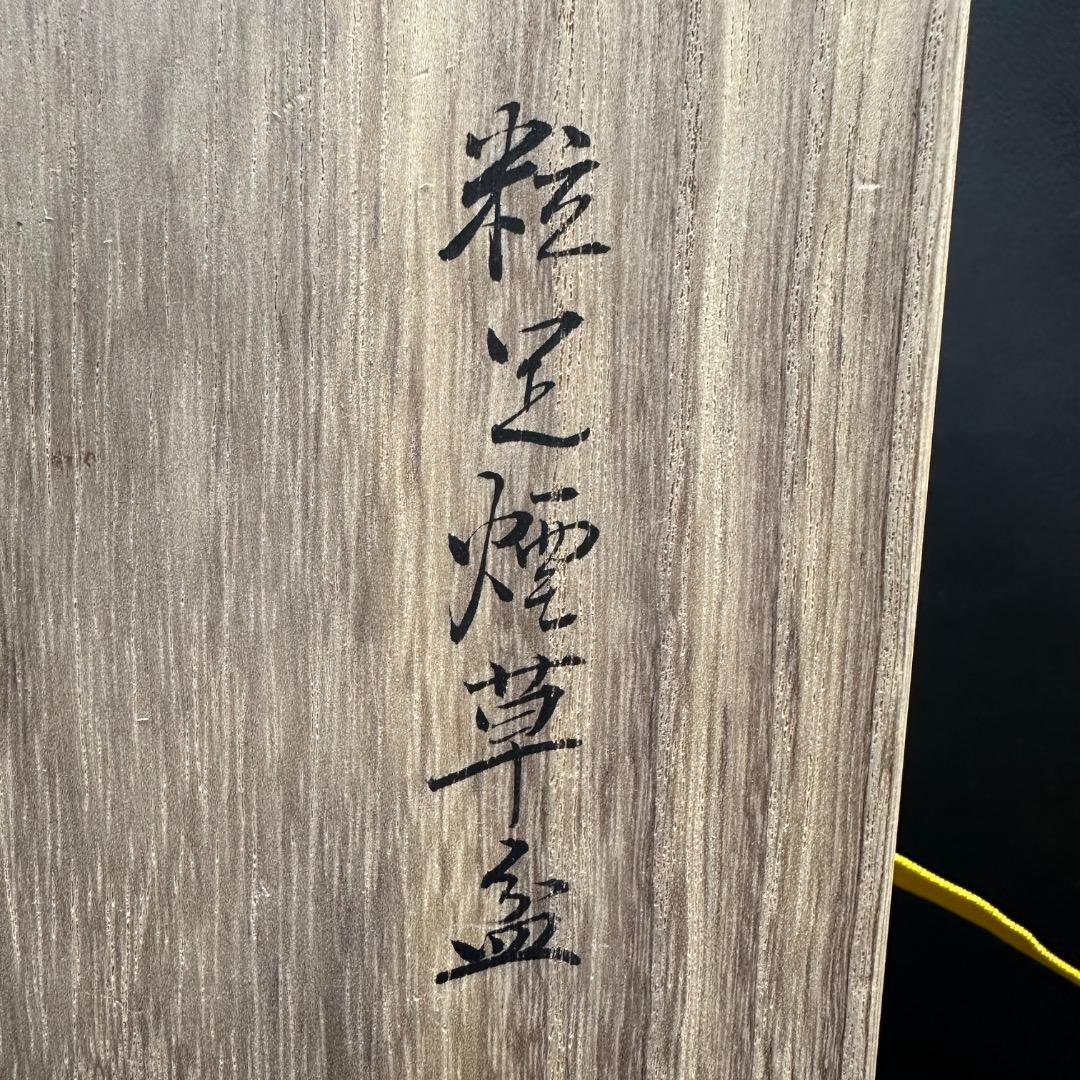 粒足煙草盆